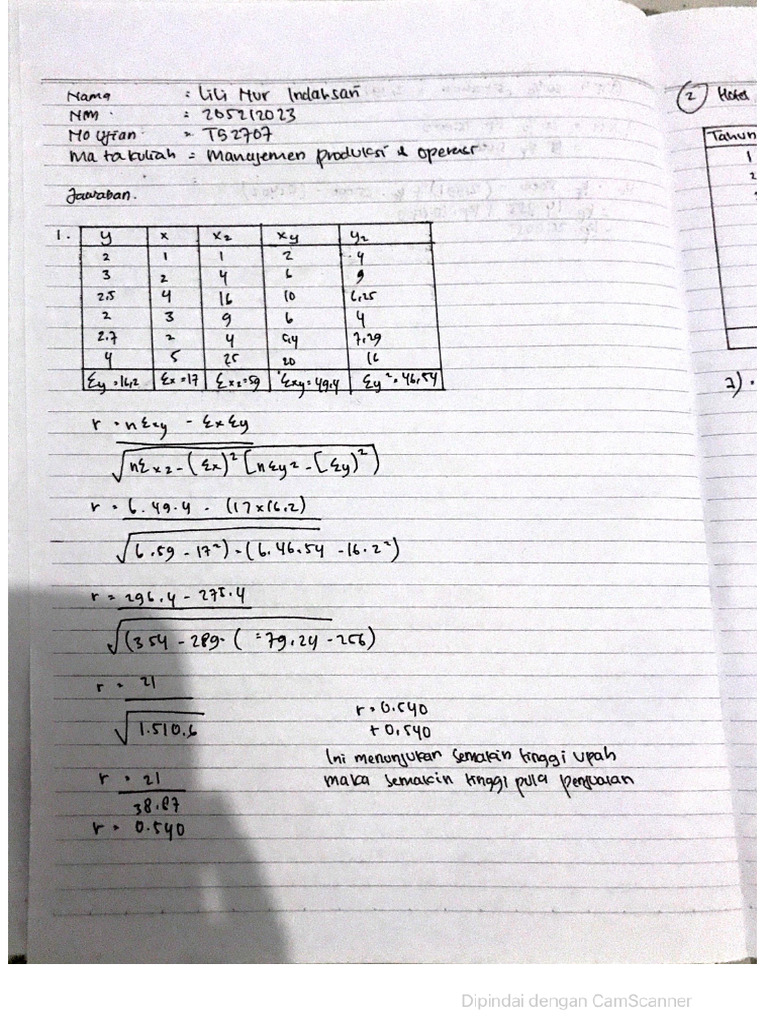 Nama : Lili Nur Indahsari
NIM : 205212023
No Ujian = TS2707
Mata kuliah = Manajemen produksi & operasi
Jawaban.
1. y x x2 xy y2
2 1 1 2 4
3 2 4 6 9
2,5 4 16 10 6,25
2 3 9 6 4
2.7 2 4 5,4 7,29
4 5 25 20 16
Σy = 16,2 Σx = 17 Σx2 = 59 Σxy = 49,4 Σy2 = 46,54
r = nΣxy - ΣxΣy
√nΣx2 - (Σx)² [nΣy2 - [Σy)²)
r = 6. 49.4 - (17x16.2)
√(6.59 - 17²) - (6.46.54 - 16.2²)
r = 296.4 - 275.4
√(354 - 289 - ( =79,24 - 256)
r = 21
√1.510.6
r = 21
38.87
r = 0.540
r = 0.540
+ 0,540
Ini menunjukan semakin tinggi upah
maka semakin tinggi pula penjualan
2 Hotel
Tahun
1
2
a) .
Dipindai dengan CamScanner